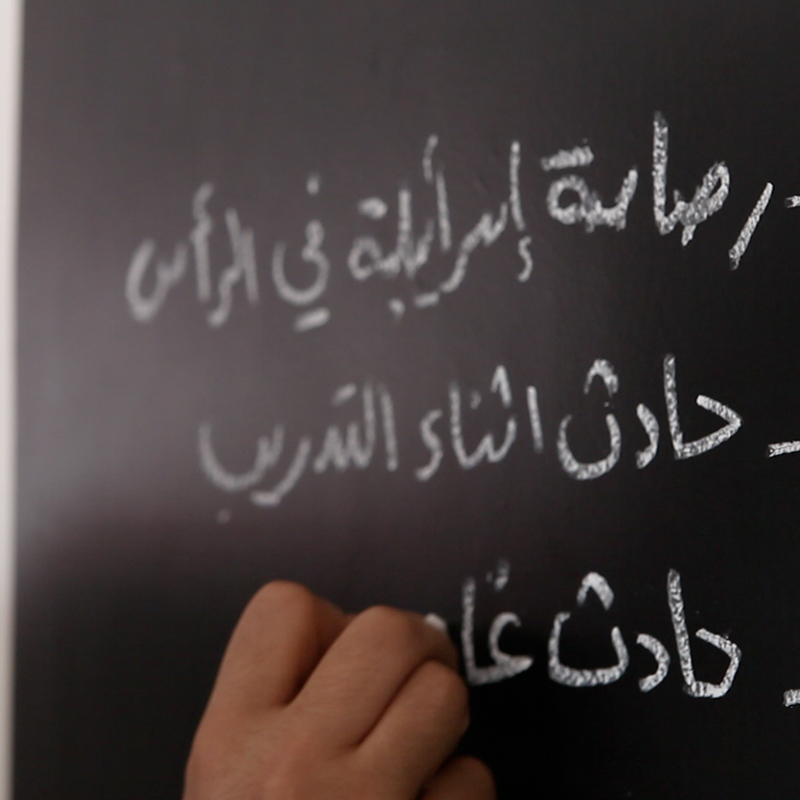 - رصاصة إسرائيلية في الرأس
- حادث اثناء التدريب
- حادث